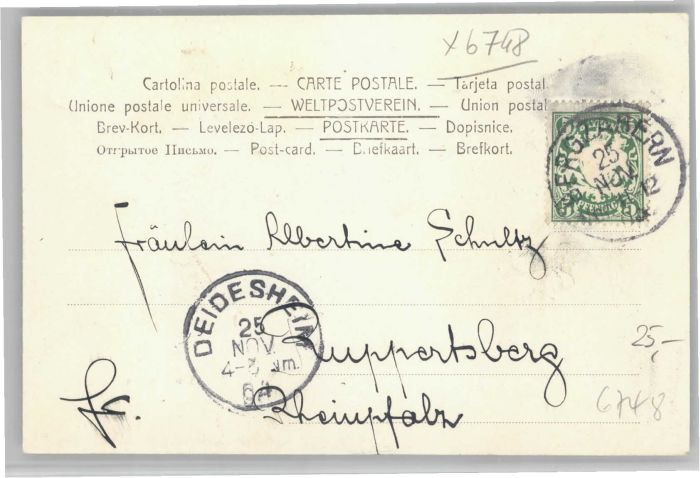 x6748
Cartolina postale. — CARTE POSTALE. — Tarjeta postal.
Unione postale universale. — WELTPOSTVEREIN. — Union postal
Brev-Kort. — Levelező-Lap. — POSTKARTE. — Dopisnice.
Открытое Письмо. — Post-card. — Briefkaart. — Brefkort.
BERGZABERN
25
NOV.
12
Fräulein Albertine Schultz
DEIDESHEIM
25
NOV.
4-5 Nm.
04
Ruppertsberg
25,-
Rheinpfalz
Fr.
6748